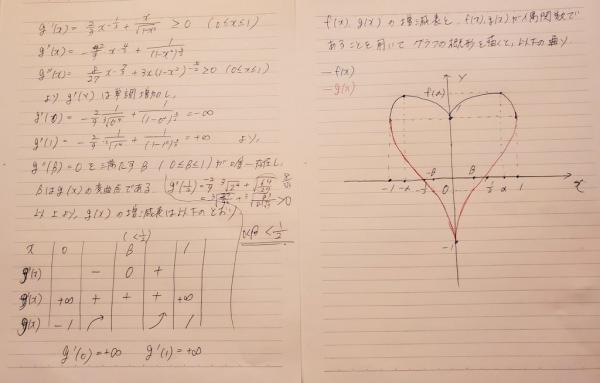 g'(x) = 2/3 x^{-1/3} + x/√(1-x²) > 0 (0≤x≤1)
g''(x) = -2/9 x^{-4/3} + 1/(1-x²)^{3/2}
g'''(x) = 8/27 x^{-7/3} + 3x(1-x²)^{-5/2} ≥ 0 (0≤x≤1)
より g''(x) は単調増加し、
g''(0) = = -∞
g''(1) = = +∞ より、
g''(β) = 0 を満たす β (0≤β≤1) が唯一存在し、
βはg(x)の変曲点である
g''(1/2) = > 0
以上より、g(x) の増減表は以下のとおり
0<β<1/2
(<1/2)
x 0 β 1
g''(x) - 0 +
g'(x) +∞ + + + +∞
g(x) -1 1
g'(0) = +∞ g'(1) = +∞
f(x), g(x) の増減表と、f(x), g(x) が偶関数で
あることを用いて グラフの概形を描くと、以下の通り
-f(x)
-g(x)
y
f(α)
1
-1 -α -β 0 β 1/2 α 1 x
-1